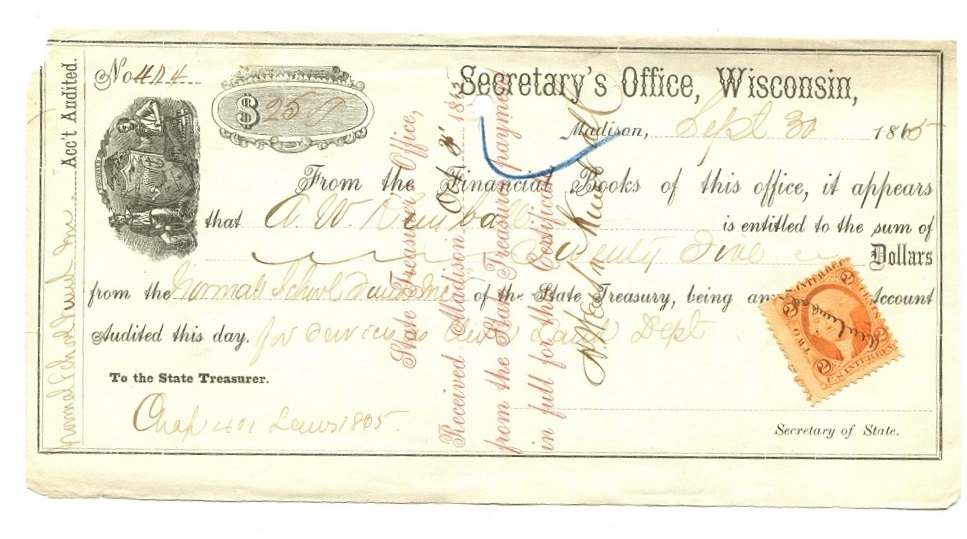 No 414
$ 250
Secretary's Office, Wisconsin,
Madison, Sept 30 1865
From the Financial Books of this office, it appears
that A. W. Kimball is entitled to the sum of
Twenty Five Dollars
from the Normal School Fund Inc of the State Treasury, being an Account
Audited this day. for services as Clerk Land Dept.
To the State Treasurer.
Chap 401 Laws 1865.
Secretary of State.
Acc't Audited.
Normal School Fund Inc
State Treasurer's Office,
Received, Madison, Oct 3 186
from the State Treasurer payment
in full for this Certificate.
TWO CENTS
U.S. INTER. REV.
2
2
2